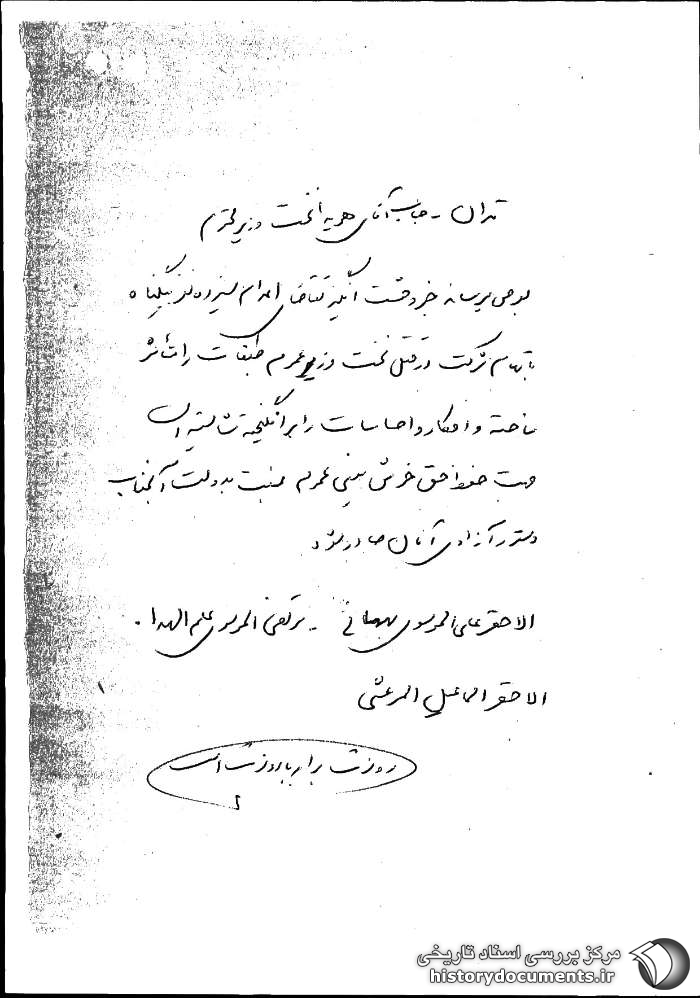 تهران - جناب آقای هویدا نخست وزیر محترم
بعرض میرساند خبر وحشت انگیز تقاضای اعدام سیزده نفر بیگناه
باتهام شرکت در قتل نخست وزیر عموم طبقات را متأثر
ساخته و افکار و احساسات را برانگیخته شایسته است
جهت حفظ حق خوش بینی عموم نسبت بدولت آنجناب
دستور آزادی آنان صادر شود
الاحقر علی الموسوی بهبهانی - مرتضی الموسوی علم الهدا.
الاحقر اسماعیل المرعشی
رونوشت برابر با رونوشت است
مرکز بررسی اسناد تاریخی
historydocuments.ir